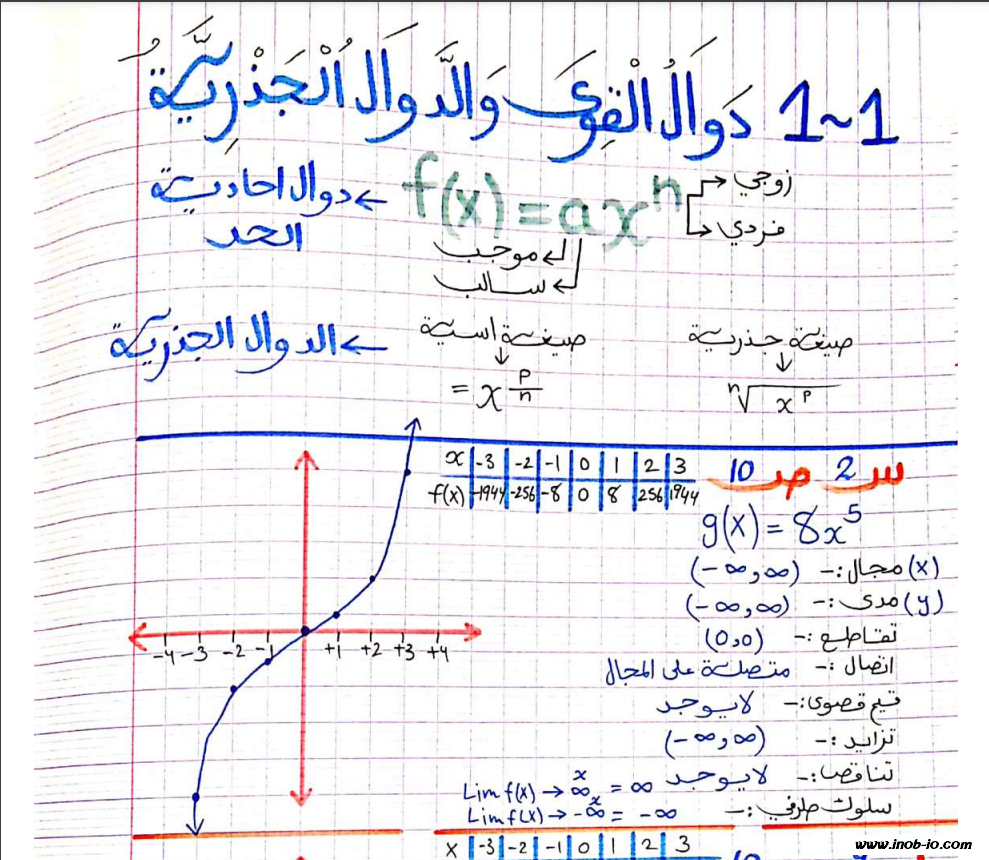 1~1 دَوَالُ الْقِوَى وَالدَّوَالُ الْجَذْرِيَّةُ
f(x) = ax^n
زوجي
فردي
← دوال احادية الحد
موجب
سالب
← الدوال الجذرية
صيغة اسية
صيغة جذرية
= x^(p/n)
ⁿ√x^p
س 2 ص 10
x | -3 | -2 | -1 | 0 | 1 | 2 | 3
f(x) | -1944 | -256 | -8 | 0 | 8 | 256 | 1944
g(x) = 8x^5
(x) مجال :- (-∞,∞)
(y) مدى :- (-∞,∞)
تقاطع :- (0,0)
اتصال :- متصلة على المجال
قيم قصوى :- لا يوجد
تزايد :- (-∞,∞)
تناقص :- لا يوجد
سلوك طرفي :-
Lim f(x) → ∞ x = ∞
Lim f(x) → -∞ x = -∞
-4 -3 -2 -1 +1 +2 +3 +4
x | -3 | -2 | -1 | 0 | 1 | 2 | 3
www.inob-io.com